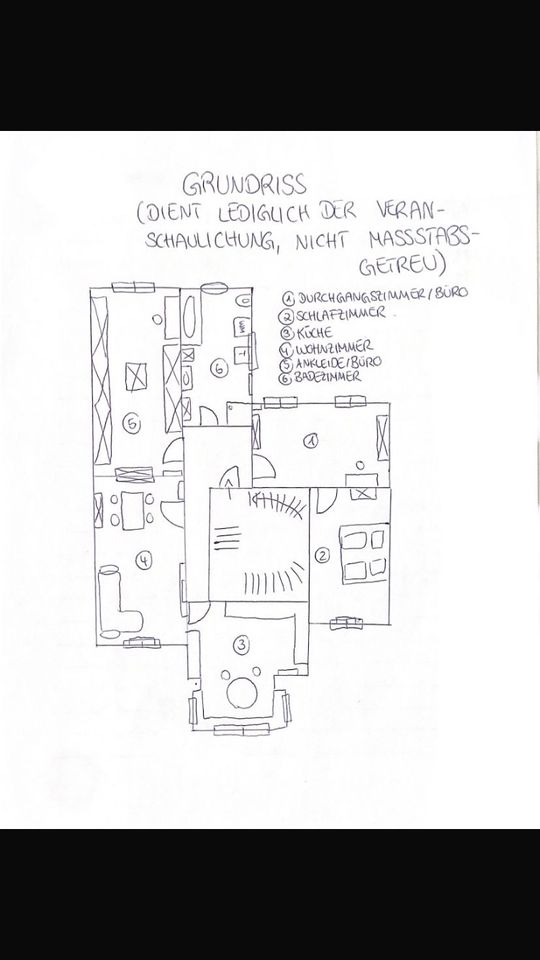 GRUNDRISS
(DIENT LEDIGLICH DER VERAN-
SCHAULICHUNG, NICHT MASSSTABS-
GETREU)
① DURCHGANGSZIMMER/BÜRO
② SCHLAFZIMMER
③ KÜCHE
④ WOHNZIMMER
⑤ ANKLEIDE/BÜRO
⑥ BADEZIMMER
⑥
①
⑤
②
④
③